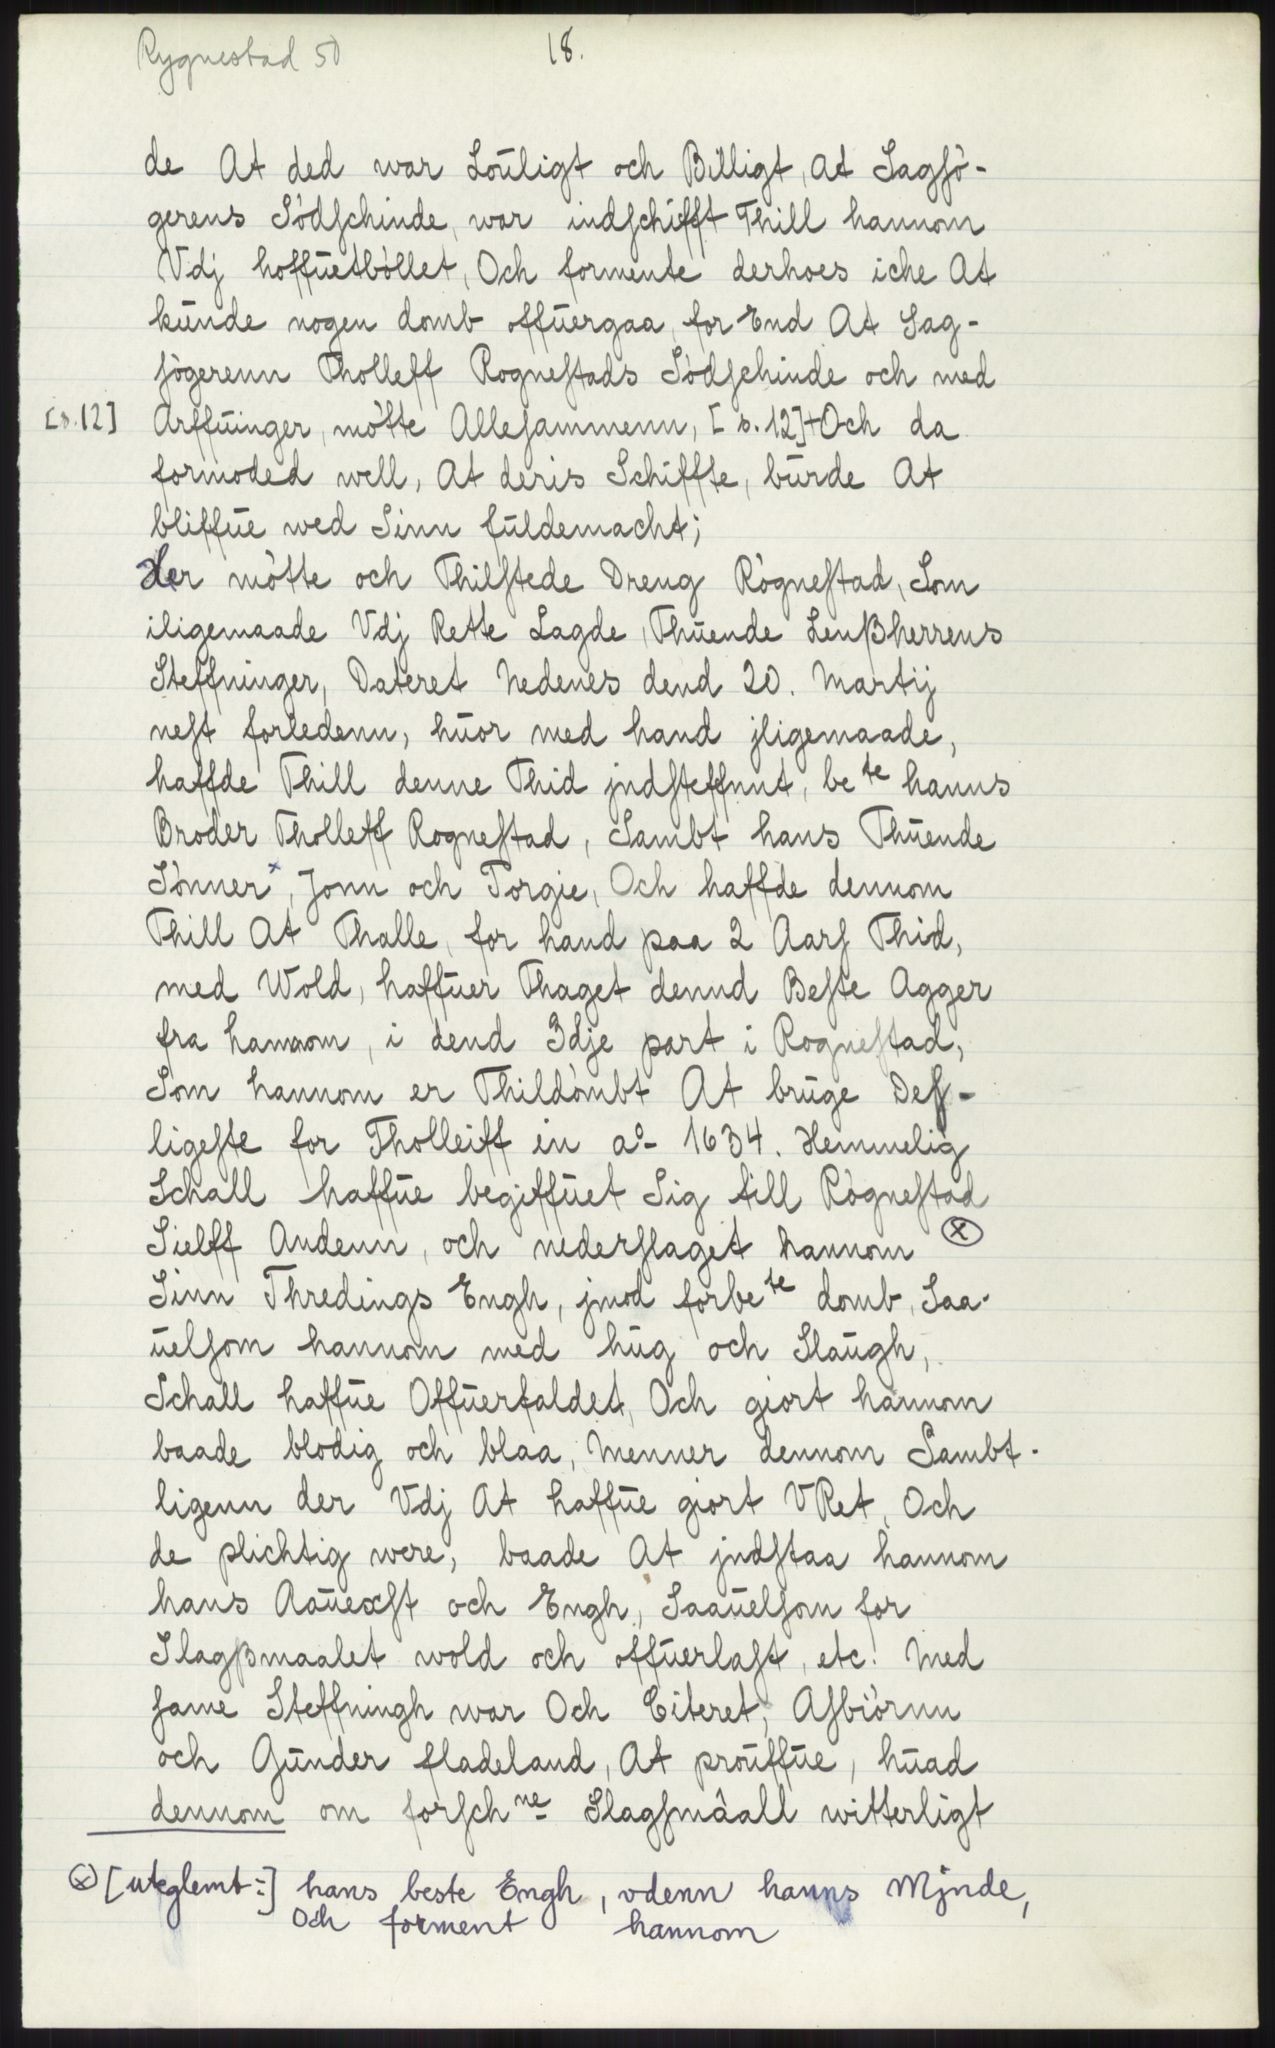 Rygnestad 50
18.
de At ded war Louligt och Billigt, at Sagsö-
gerens Södschinde, war indschifft Thill hannom
Vdj hoffuetböllet, Och formente derhoes iche At
kunde nogen domb offuergaa, for End At Sag-
sögerenn Tholleff Rognestads Södschinde och med
[s.12] Arffuinger, mötte Allesammenn, [s.12]+Och da
formoded well, At deris Schiffte, burde At
bliffue wed Sinn fuldemacht;
Her mötte och Thilstede Dreng Rögnestad, Som
iligemaade Vdj Rette Lagde, Thuende Lenßherrens
Steffninger, Dateret Nedenes dend 20. Martij
nest forledenn, huor med hand jligemaade,
haffde Thill denne Thid jndsteffnnt, be te hanns
Broder Tholleff Rognestad, Sambt hans Thuende
Sönner x, Jonn och Torgie, Och haffde dennom
Thill At Thalle, for hand paa 2 Aars Thid,
med Wold, haffuer Thaget dennd Beste Agger
fra hannom, i dend 3dje part i Rognestad,
Som hannom er Thildömbt At bruge Des-
ligeste for Tholleiff in ao 1634. Hemmelig
Schall haffue begiffuet Sig till Rögnestad
Sielff Andenn, och nederslaget hannom (x)
Sinn Thredings Engh, jmod forbe te domb, Saa-
uelsom hannom med hug och Slaugh,
Schall haffue Offuerfaldet, Och giort hannom
baade blodig och blaa, Menner dennom Sambt-
ligenn der Vdj At haffue giort VRet, Och
de plichtig were, baade At jndstaa hannom
hans Aauexst och Engh, Saauelsom for
Slagßmaalet wold och offuerlast, etc. Med
same Steffningh war Och Citeret, Asbiörnn
och Gunder fladeland, At prouffue, huad
dennom om forsch ne Slagsmåall witterligt
(x) [uteglemt:] hans beste Engh, vdenn hanns Mjnde,
Och forment hannom